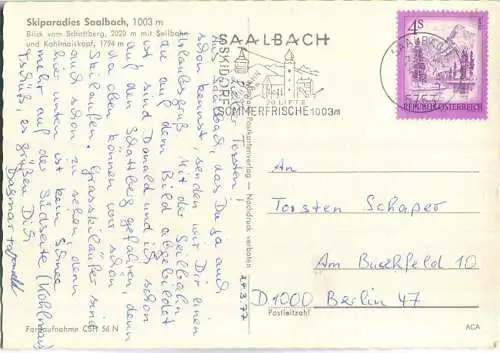 Skiparadies Saalbach, 1003 m
Blick vom Schattberg, 2020 m mit Seilbahn
und Kohlmaiskopf, 1794 m
Lieber Torsten!
Aus Saalbach, das Du ja auch
schon kennst, senden wir Dir einen
Urlaubsgruß. Mit der Seilbahn
auf dem Bild abgebildet
ist sind Donald und ich schon
auf den Schattberg gefahren, denn
da oben können wir schön
Skilaufen. Grasskiläufer sind
auch schon zu sehen, denn
hier unten ist kein Schnee
mehr auf der Südseite (Kohlmais)
Tschüß, es grüßen Dich
Dagmar + Donald
Farbaufnahme CSH 56 N
Postkartenverlag — Nachdruck verboten
24.3.77
SAALBACH
SKIDORF
20 LIFTE
SOMMERFRISCHE 1003m
SAALBACH
4S
REPUBLIK ÖSTERREICH
An
Torsten Schaper
Am Buchfeld 10
D1000 Berlin 47
Postleitzahl
ACA